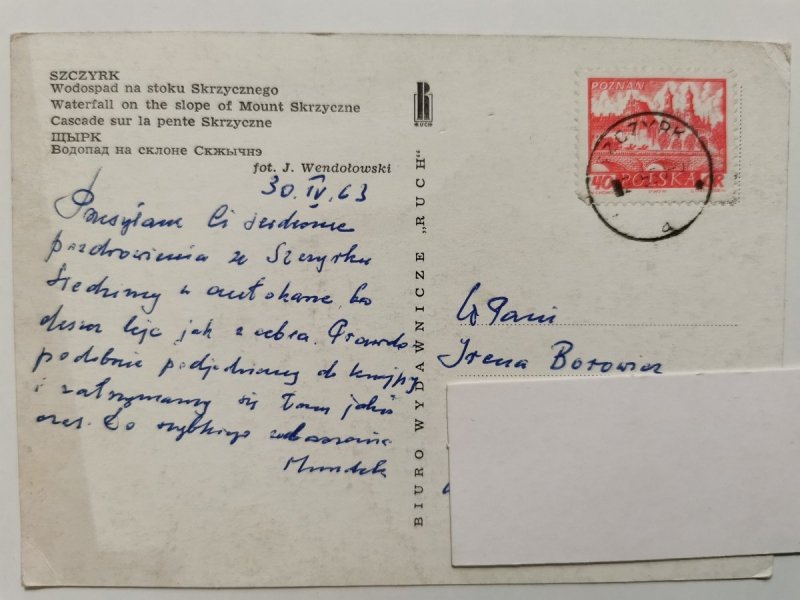 SZCZYRK
Wodospad na stoku Skrzycznego
Waterfall on the slope of Mount Skrzyczne
Cascade sur la pente Skrzyczne
ЩЫРК
Водопад на склоне Скжычнэ
fot. J. Wendołowski
30 IV 63
Przesyłam Ci serdeczne
pozdrowienia ze Szczyrku
Siedzimy w autokarze, bo
deszcz leje jak z cebra. Prawdo
podobnie podjedziemy do knajpy
i zatrzymamy się tam jakiś
czas. Do szybkiego zobaczenia
Mundek
RUCH
BIURO WYDAWNICZE „RUCH"
POZNAŃ
40 POLSKA GR
SZCZYRK
a
W Pani
Irena Borowicz